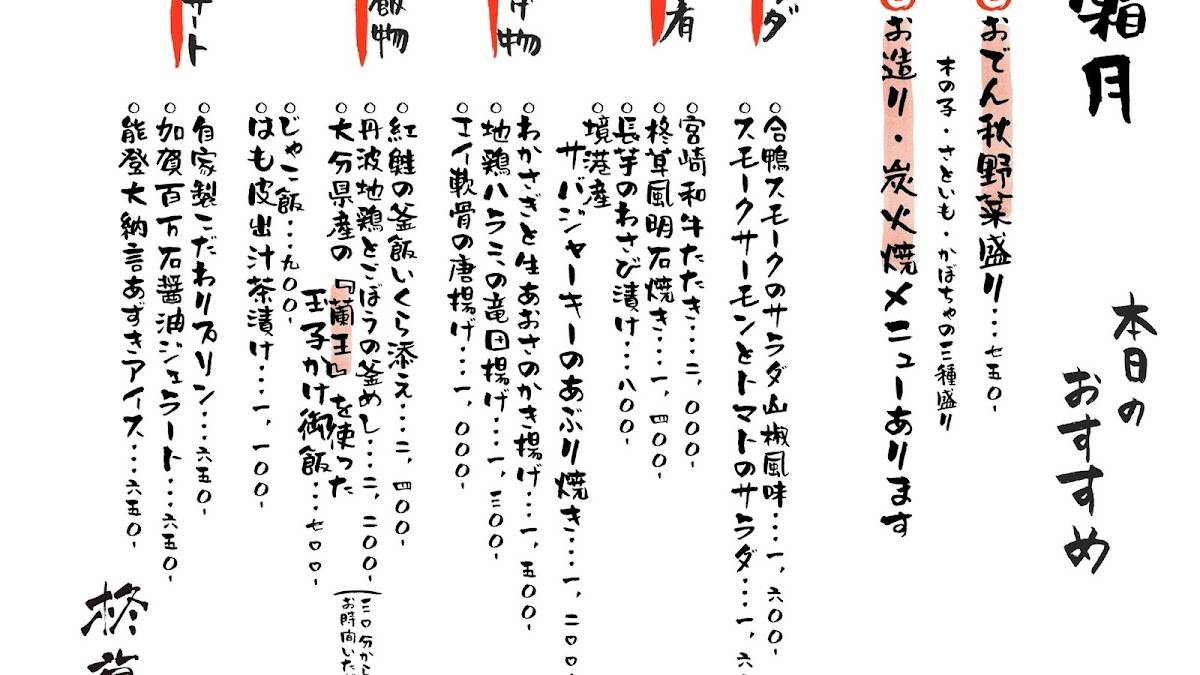 霜月
本日の
おすすめ
おでん秋野菜盛り・・・七五〇
木の子・さといも・かぼちゃの三種盛り
お造り・炭火焼メニューあります
ダ
○合鴨スモークのサラダ山椒風味・・・一、六〇〇-
○スモークサーモンとトマトのサラダ・・・一、六
肴
○宮崎和牛たたき・・・二、〇〇〇-
○柊草風明石焼き・・・一、四〇〇-
○長芋のわさび漬け・・・八〇〇-
○境港産
サバジャーキーのあぶり焼き・・・一、二〇〇-
げ物
○わかさぎと生あおさのかき揚げ・・・一、五〇〇-
○地鶏ハラミの竜田揚げ・・・一、三〇〇-
○エイ軟骨の唐揚げ・・・一、〇〇〇-
飯物
○紅鮭の釜飯いくら添え・・・二、四〇〇-
○丹波地鶏とごぼうの釜めし・・・二、二〇〇-
(三〇分から
お時間いただ
○大分県産の『蘭王』を使った
玉子かけ御飯・・・七〇〇-
○じゃこ飯・・・九〇〇-
○はも皮出汁茶漬け・・・一、一〇〇-
ート
○自家製こだわりプリン・・・六五〇-
○加賀百万石醤油ジェラート・・・六五〇-
○能登大納言あずきアイス・・・六五〇-
柊